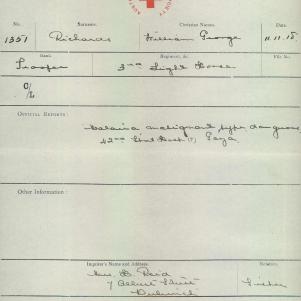 No. Surname. Christian Names.
1351 Richards William George 11.11.18
Rank. Regiment, &c. File No.
Trooper 3rd Light Horse
O/L
OFFICIAL REPORTS:
Malaria malignant type dangerous
42nd Stat Hosp (?) Gaza.
Other Information:
Inquirer's Name and Address. Relation.
Mrs. B. Reid Sister
7 Albert Street
Dulwich